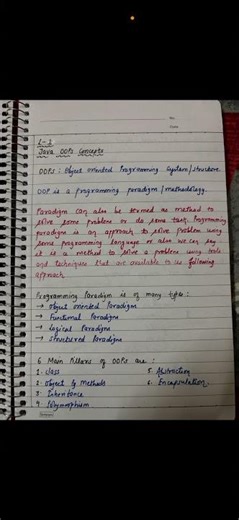 L-2
Java OOPs Concepts
OOPs : Object oriented Programming System/structure.
OOP is a programming paradigm/methodology.
Paradigm can also be termed as method to
solve some problem or do some task. Programming
paradigm is an approach to solve problem using
some programming language or also we can say
it is a method to solve a problem using tools
and techniques that are available to us following
approach.
Programming Paradigm is of many types:
→ Object oriented Paradigm
→ Functional Paradigm
→ Logical Paradigm
→ Structured Paradigm
6 Main Pillars of OOPs are :
1. Class 5. Abstraction
2. Object & Methods 6. Encapsulation
3. Inheritance
4. Polymorphism